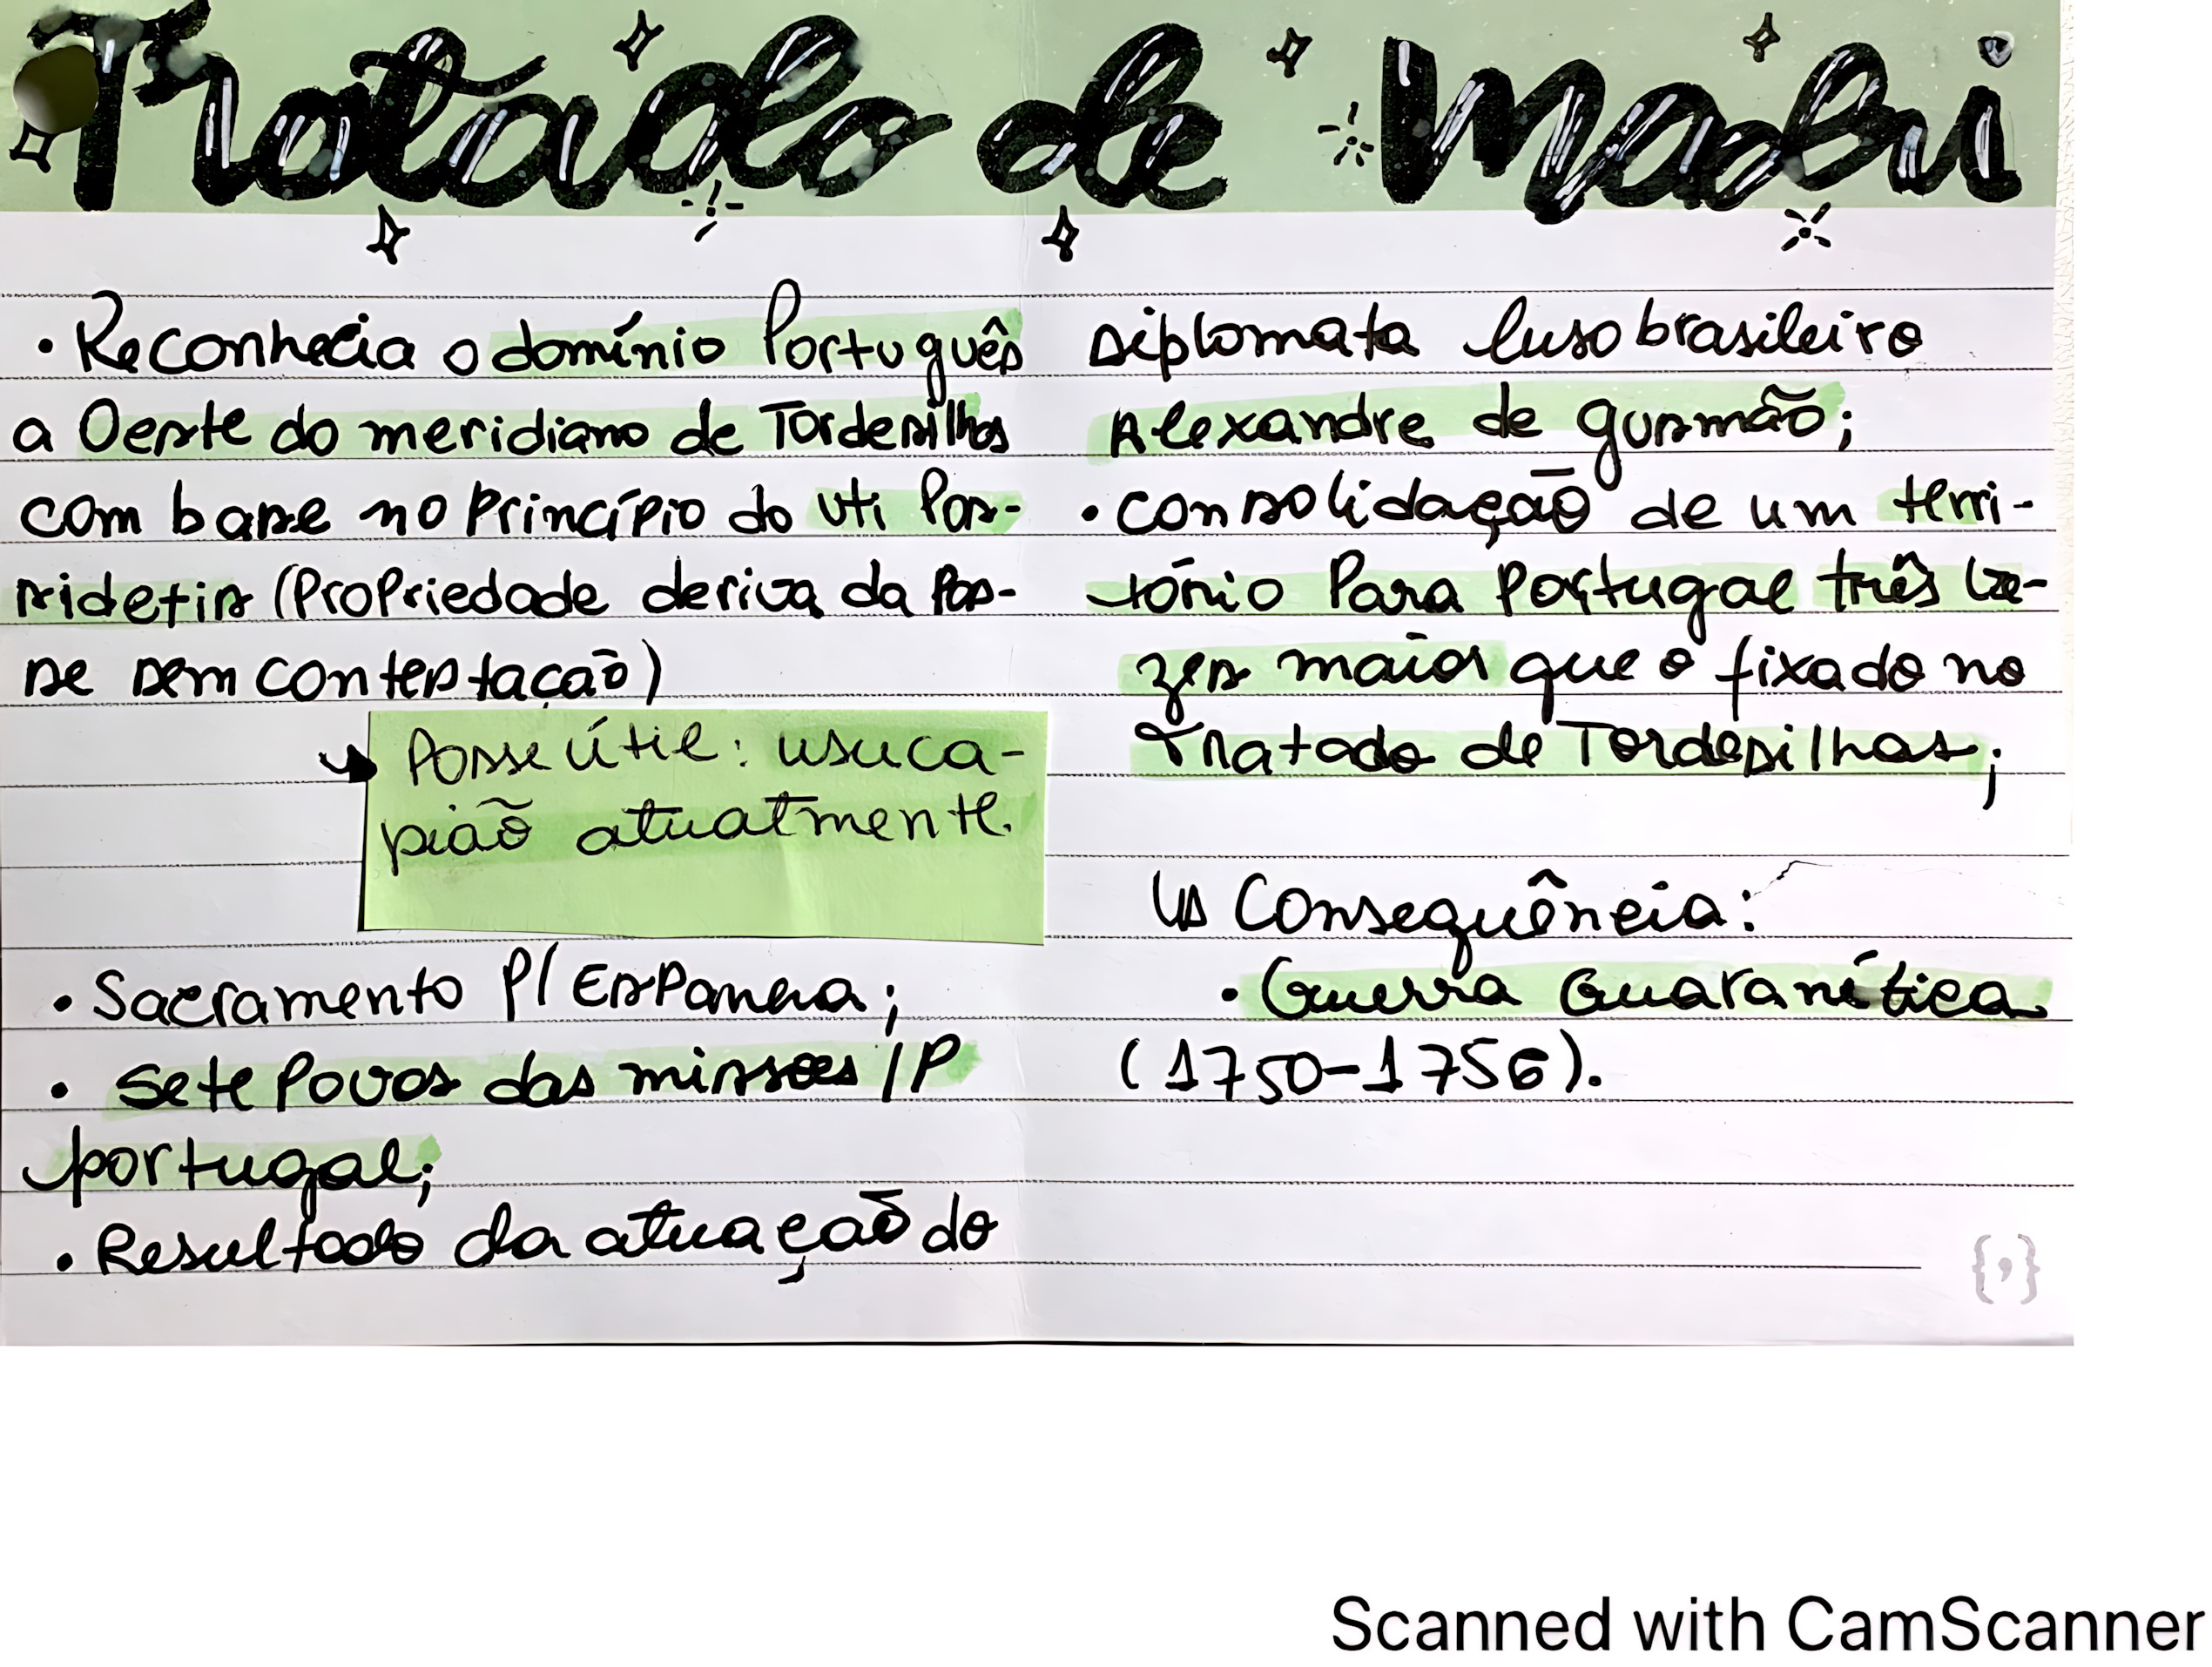 Tratado de Madri
• Reconhecia o domínio Português
a Oeste do meridiano de Tordesilhas
com base no Princípio do uti Pos-
sidetis (Propriedade deriva da Pos-
se sem contestação)
→ Posse útil: usuca-
pião atualmente.
• Sacramento P/ Espanha;
• Sete Povos das missões /P
portugal;
• Resultado da atuação do
diplomata luso brasileiro
Alexandre de gusmão;
• consolidação de um terri-
tório Para Portugal três ve-
zes maior que o fixado no
Tratado de Tordesilhas;
↳ Consequência:
• Guerra Guaranítica
(1750-1756).
{,}
Scanned with CamScanner